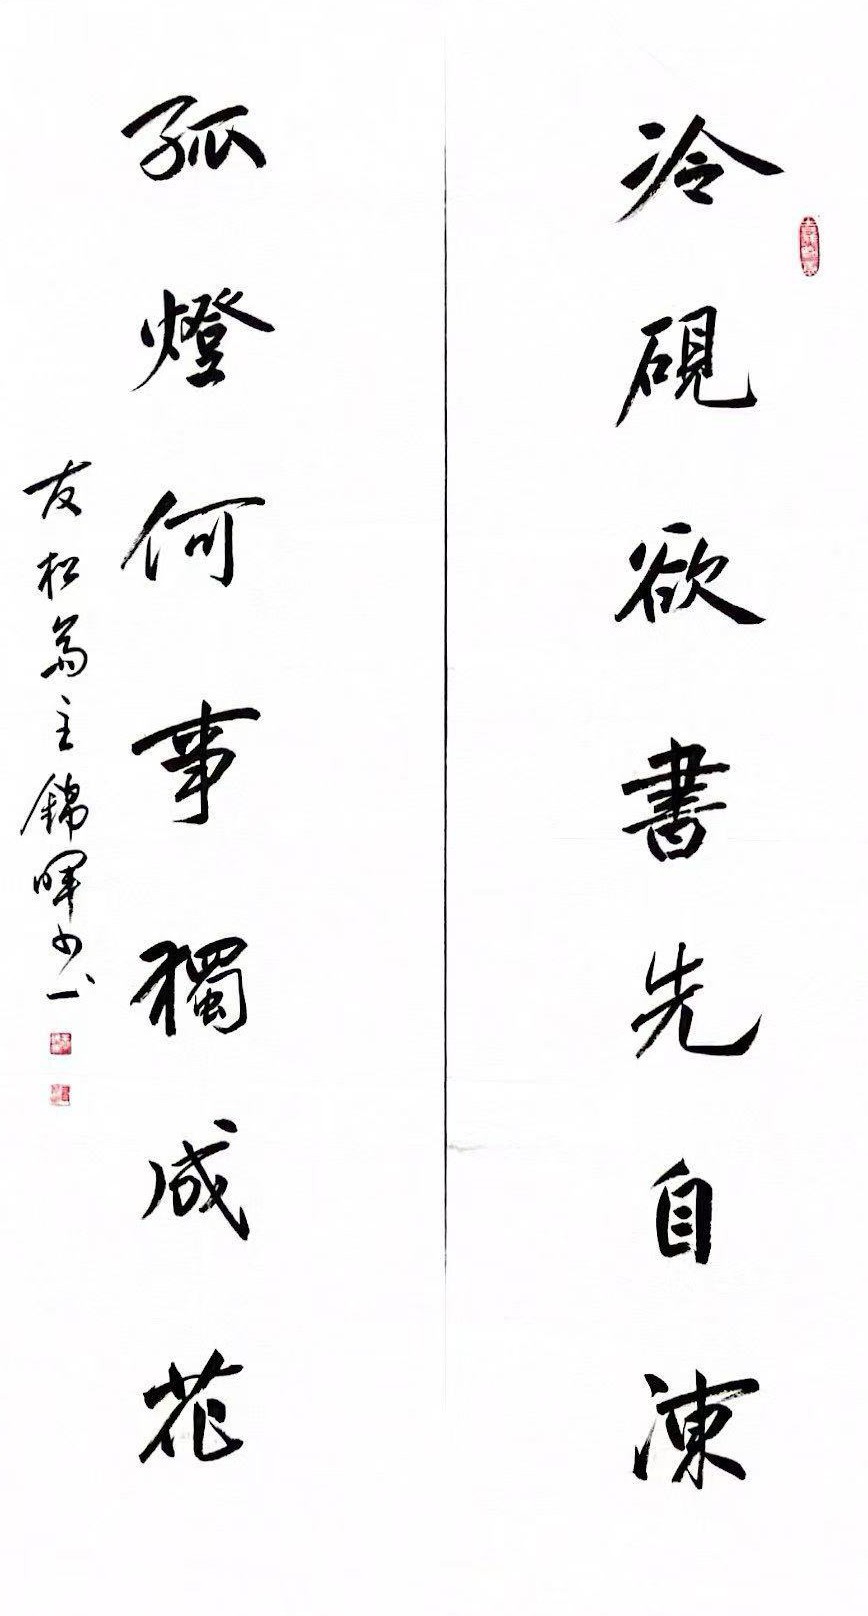 冷硯欲書先自凍
孤燈何事獨成花
友松斋主錦暉书